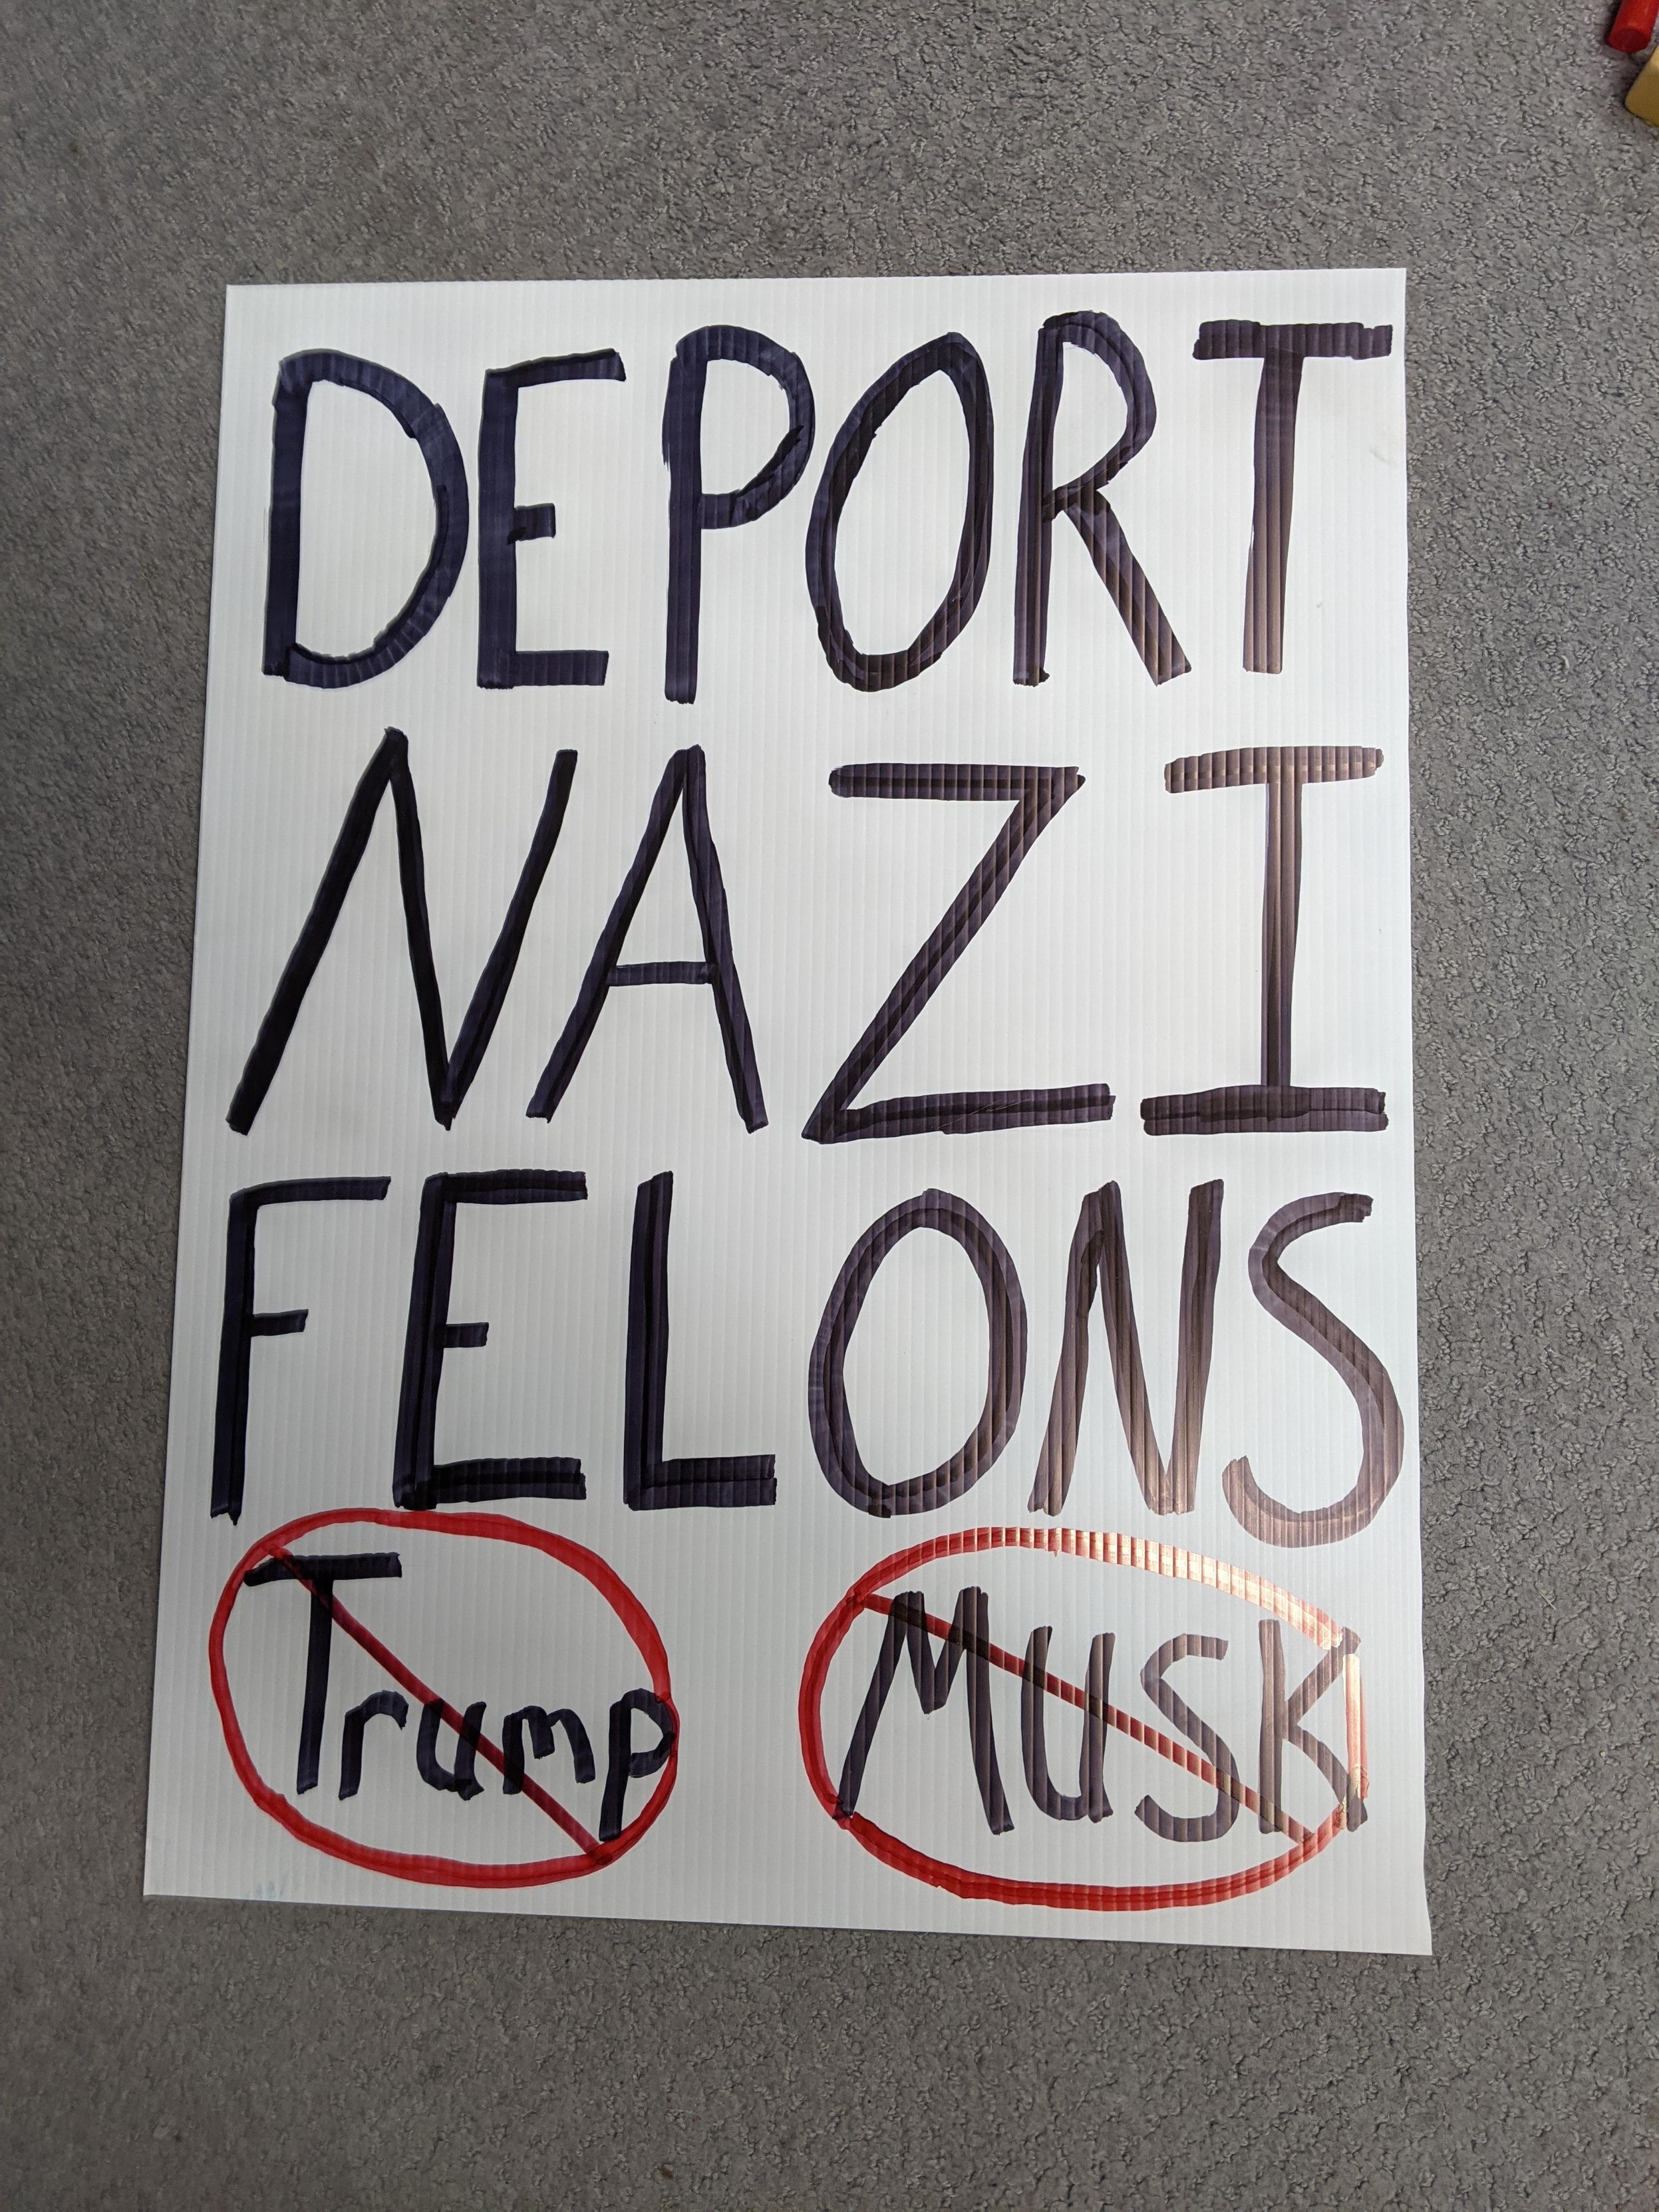 DEPORT
NAZI
FELONS
Trump MUSK